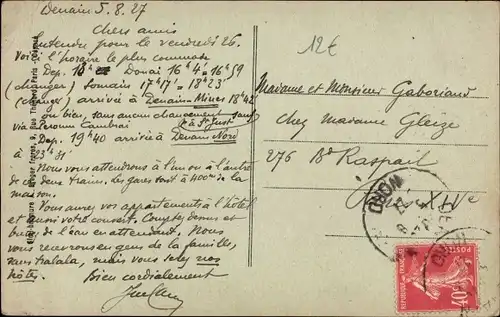 Denain 5.8.27
Chers amis
entendu pour le vendredi 26.
Voici l'horaire le plus commode
Dep. Douai 16h4' = 16h59
(changer) Somain 17h17' = 18h23'
(changer) arrivée à Denain-Mines 18h42
ou bien, sans aucun changement sauf
à St Just
via Peronne Cambrai
Dep. 19h40 arrivée à Denain Nord
à 23h31'
Nous vous attendrons à l'un ou à l'autre
de ces deux trains. Les gares sont à 400m de la
maison.
Vous aurez vos appartements à l'hôtel
et aussi votre couvert. Comptez dessus et
buvez de l'eau en attendant. Nous
vous recevrons en gens de la famille,
sans tralala, mais vous serez nos
hôtes. Bien cordialement
12€
Madame et Monsieur Gaboriaud
chez Madame Gleize
276 Bd Raspail
XIVe
POSTES
REPUBLIQUE FRANÇAISE
40c